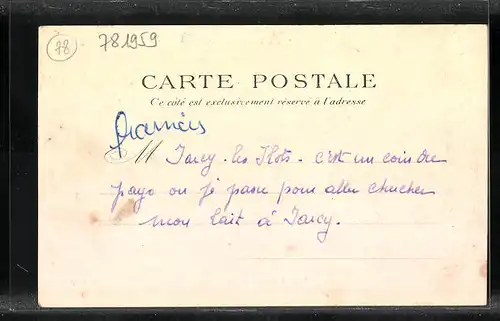 78
781959
CARTE POSTALE
Ce côté est exclusivement réservé à l'adresse
M
Jarcy - les Ilots - c'est un coin du
pays ou je passe pour aller chercher
mon lait à Jarcy.